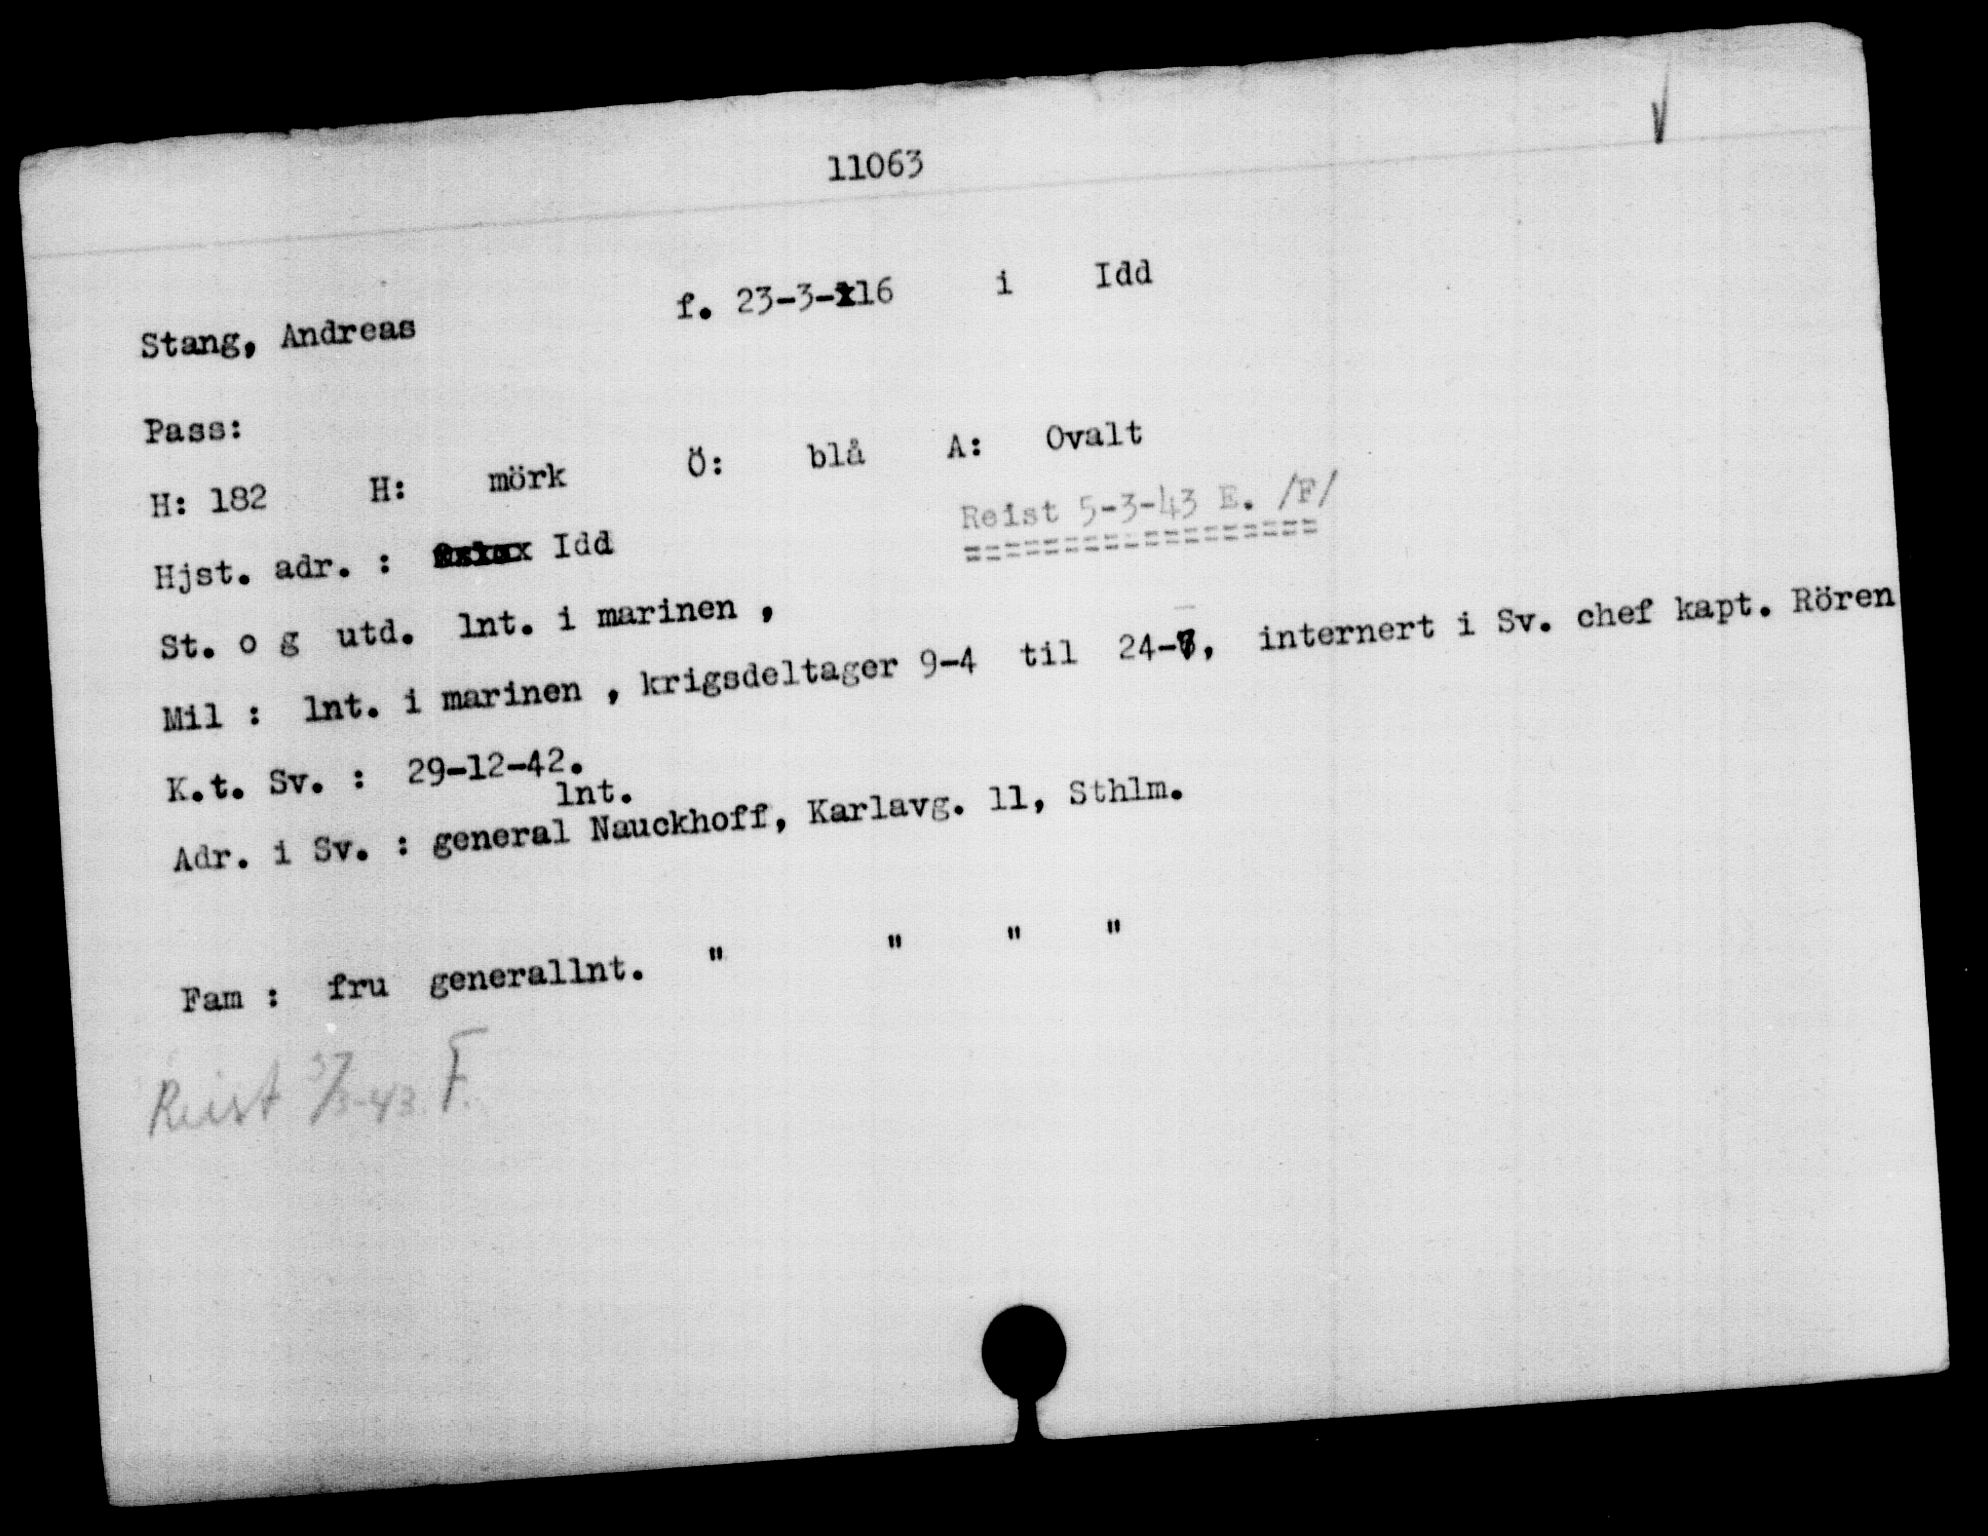 11063
Stang, Andreas f. 23-3-16 i Idd
Pass:
H: 182 H: mörk Ö: blå A: Ovalt
Reist 5-3-43 E. /F/
==================
Hjst. adr. : Idd
St. o g utd. lnt. i marinen ,
Mil : lnt. i marinen , krigsdeltager 9-4 til 24- , internert i Sv. chef kapt. Rören
K.t. Sv. : 29-12-42.
lnt.
Adr. i Sv. : general Nauckhoff, Karlavg. 11, Sthlm.
Fam : fru generallnt. " " " "
Reist 5/3-43 F.